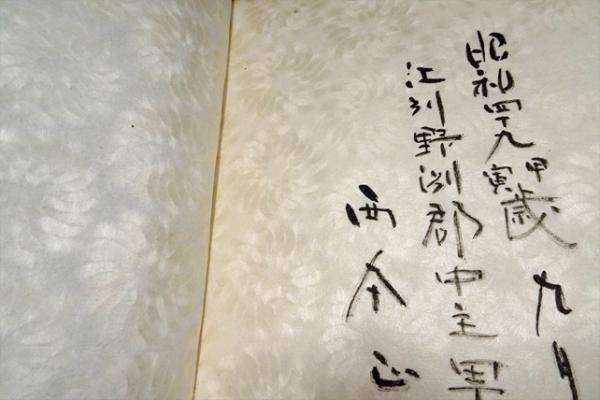 昭和四十九甲寅歳九月
江州野洲郡中主
西